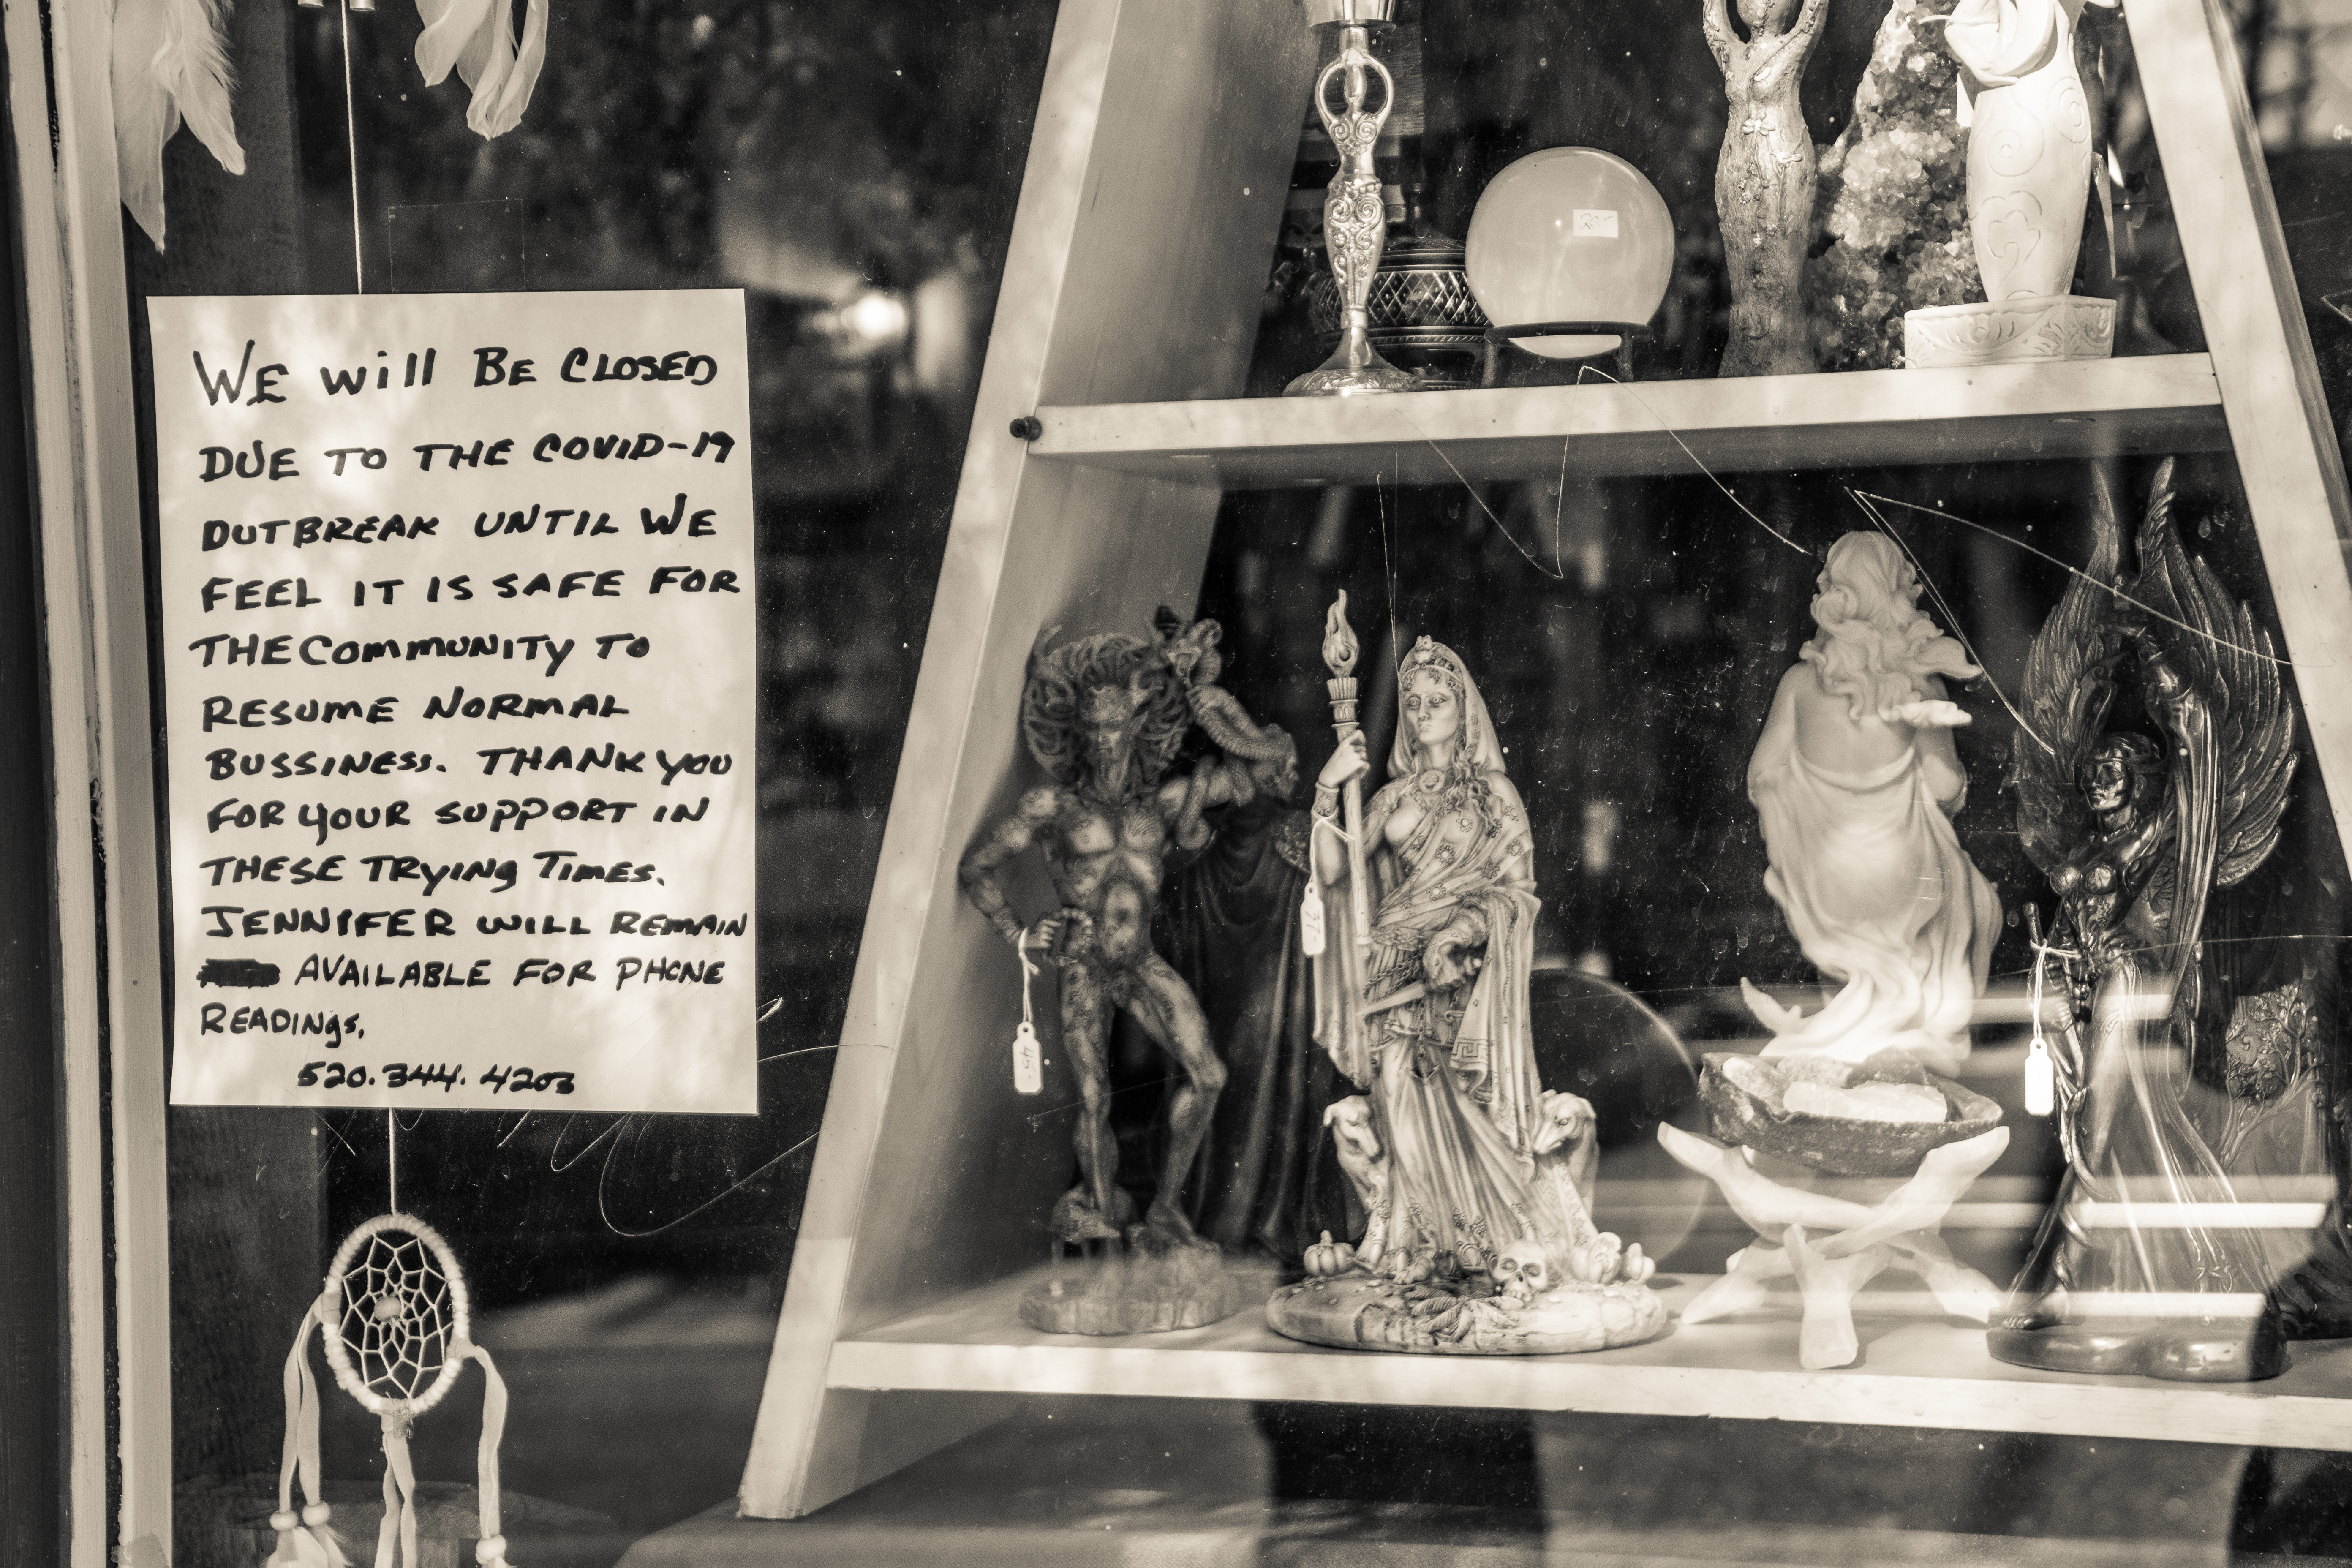 WE will BE CLOSED
DUE TO THE COVID-19
OUTBREAK UNTIL WE
FEEL IT IS SAFE FOR
THE COMMUNITY TO
RESUME NORMAL
BUSSINESS. THANK YOU
FOR YOUR SUPPORT IN
THESE TRYING TIMES.
JENNIFER WILL REMAIN
AVAILABLE FOR PHONE
READINGS.
520.344.4203